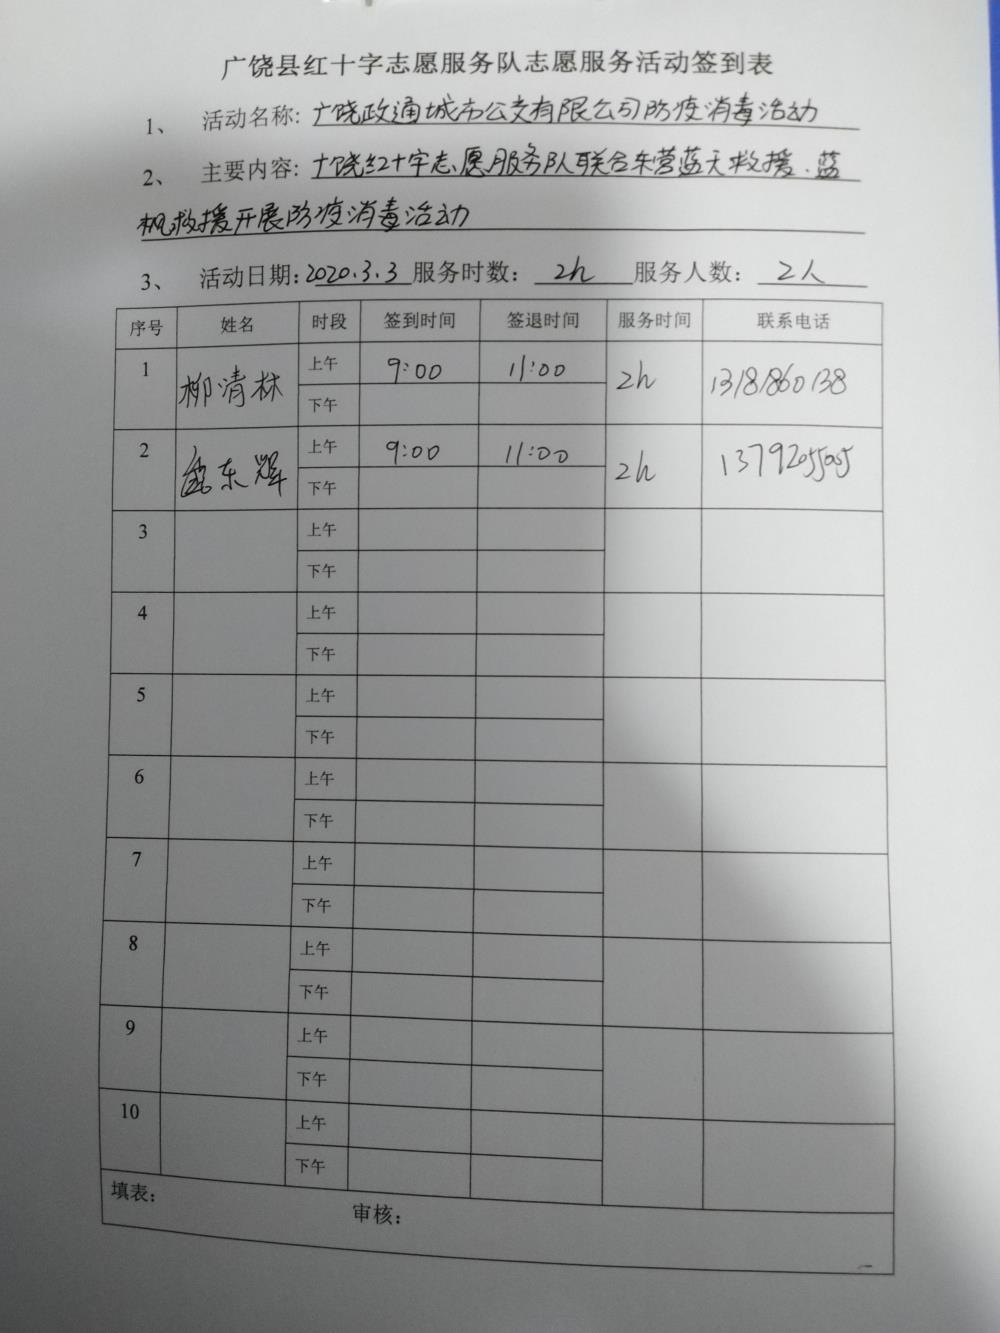 广饶县红十字志愿服务队志愿服务活动签到表
1、 活动名称: 广饶政通城市公交有限公司防疫消毒活动
2、 主要内容: 广饶红十字志愿服务队联合东营蓝天救援、蓝
枫救援开展防疫消毒活动
3、 活动日期: 2020.3.3 服务时数: 2h 服务人数: 2人
序号 姓名 时段 签到时间 签退时间 服务时间 联系电话
1 柳清林 上午 9:00 11:00 2h
下午
2 东辉 上午 9:00 11:00 2h
下午
3 上午
下午
4 上午
下午
5 上午
下午
6 上午
下午
7 上午
下午
8 上午
下午
9 上午
下午
10 上午
下午
填表: 审核: